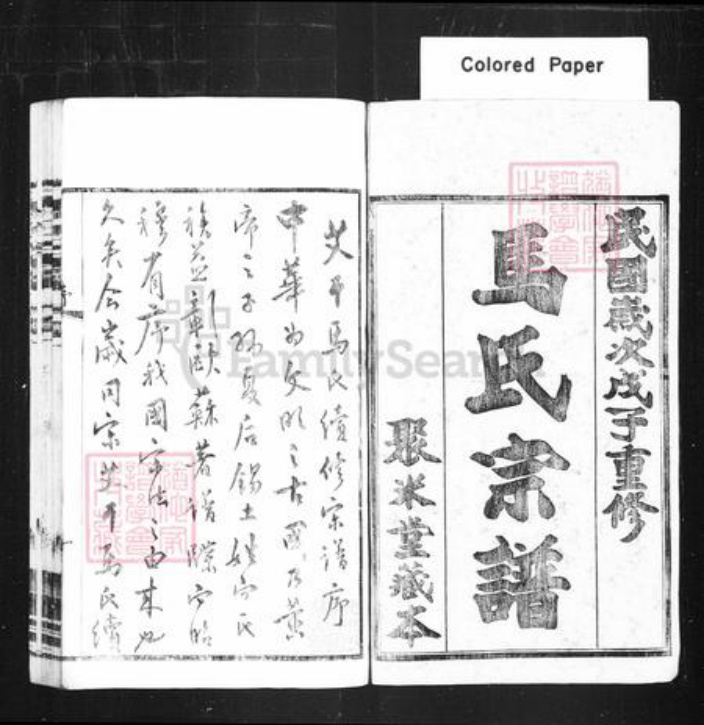 Colored Paper
民國歲次戊子重修
馬氏宗譜
聚米堂藏本
艾干馬氏續修宗譜序
中華為文明之古國乃黃
帝之子孫夏后錫土姓而氏
族益章歐蘇著譜牒而昭
穆有序我國宗法之由來也
久矣今歲同宗艾干馬氏續
FamilySearch